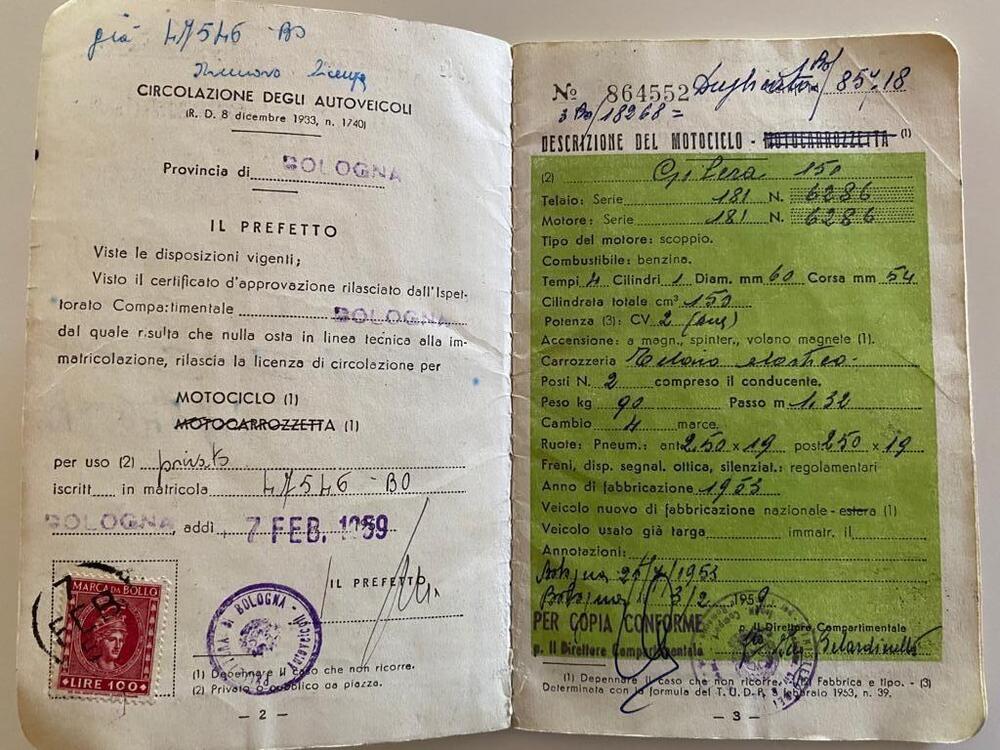 già 47546 - BO
Rinnovo licenza
CIRCOLAZIONE DEGLI AUTOVEICOLI
(R. D. 8 dicembre 1933, n. 1740)
Provincia di BOLOGNA
IL PREFETTO
Viste le disposizioni vigenti;
Visto il certificato d'approvazione rilasciato dall'Ispet-
torato Compartimentale BOLOGNA
dal quale risulta che nulla osta in linea tecnica alla im-
matricolazione, rilascia la licenza di circolazione per
MOTOCICLO (1)
MOTOCARROZZETTA (1)
per uso (2) privato
iscritt in matricola 47546 - BO
BOLOGNA, addì, 7 FEB. 1959
IL PREFETTO
MARCA DA BOLLO
7 FEB
LIRE 100
BOLOGNA
(1) Depennare il caso che non ricorre.
(2) Privato o pubblico da piazza.
— 2 —
Nº 864552 Duplicato Bo/85718
3 Bo/18268 =
DESCRIZIONE DEL MOTOCICLO - MOTOCARROZZETTA (1)
(2) Gilera 150
Telaio: Serie 181 N. 6286
Motore: Serie 181 N. 6286
Tipo del motore: scoppio.
Combustibile: benzina.
Tempi 4 Cilindri 1 Diam. mm 60 Corsa mm 54
Cilindrata totale cm³ 150
Potenza (3): CV 2 (due)
Accensione: a magn., spinter., volano magnete (1).
Carrozzeria Telaio elastico.
Posti N. 2 compreso il conducente.
Peso kg 90 Passo m 1.32
Cambio 4 marce.
Ruote: Pneum.: ant. 2.50 x 19 post. 250 x 19
Freni, disp. segnal. ottica, silenziat.: regolamentari
Anno di fabbricazione 1953
Veicolo nuovo di fabbricazione nazionale - estera (1)
Veicolo usato già targa immatr. il
Annotazioni:
Bologna 25/7/1953
Bologna 3/2 1959
PER COPIA CONFORME
p. Il Direttore Compartimentale
p. Il Direttore Compartimentale
Belardinelli
(1) Depennare il caso che non ricorre. - (2) Fabbrica e tipo. - (3)
Determinata con la formula del T. U. D. P. 8 febbraio 1953, n. 39.
— 3 —